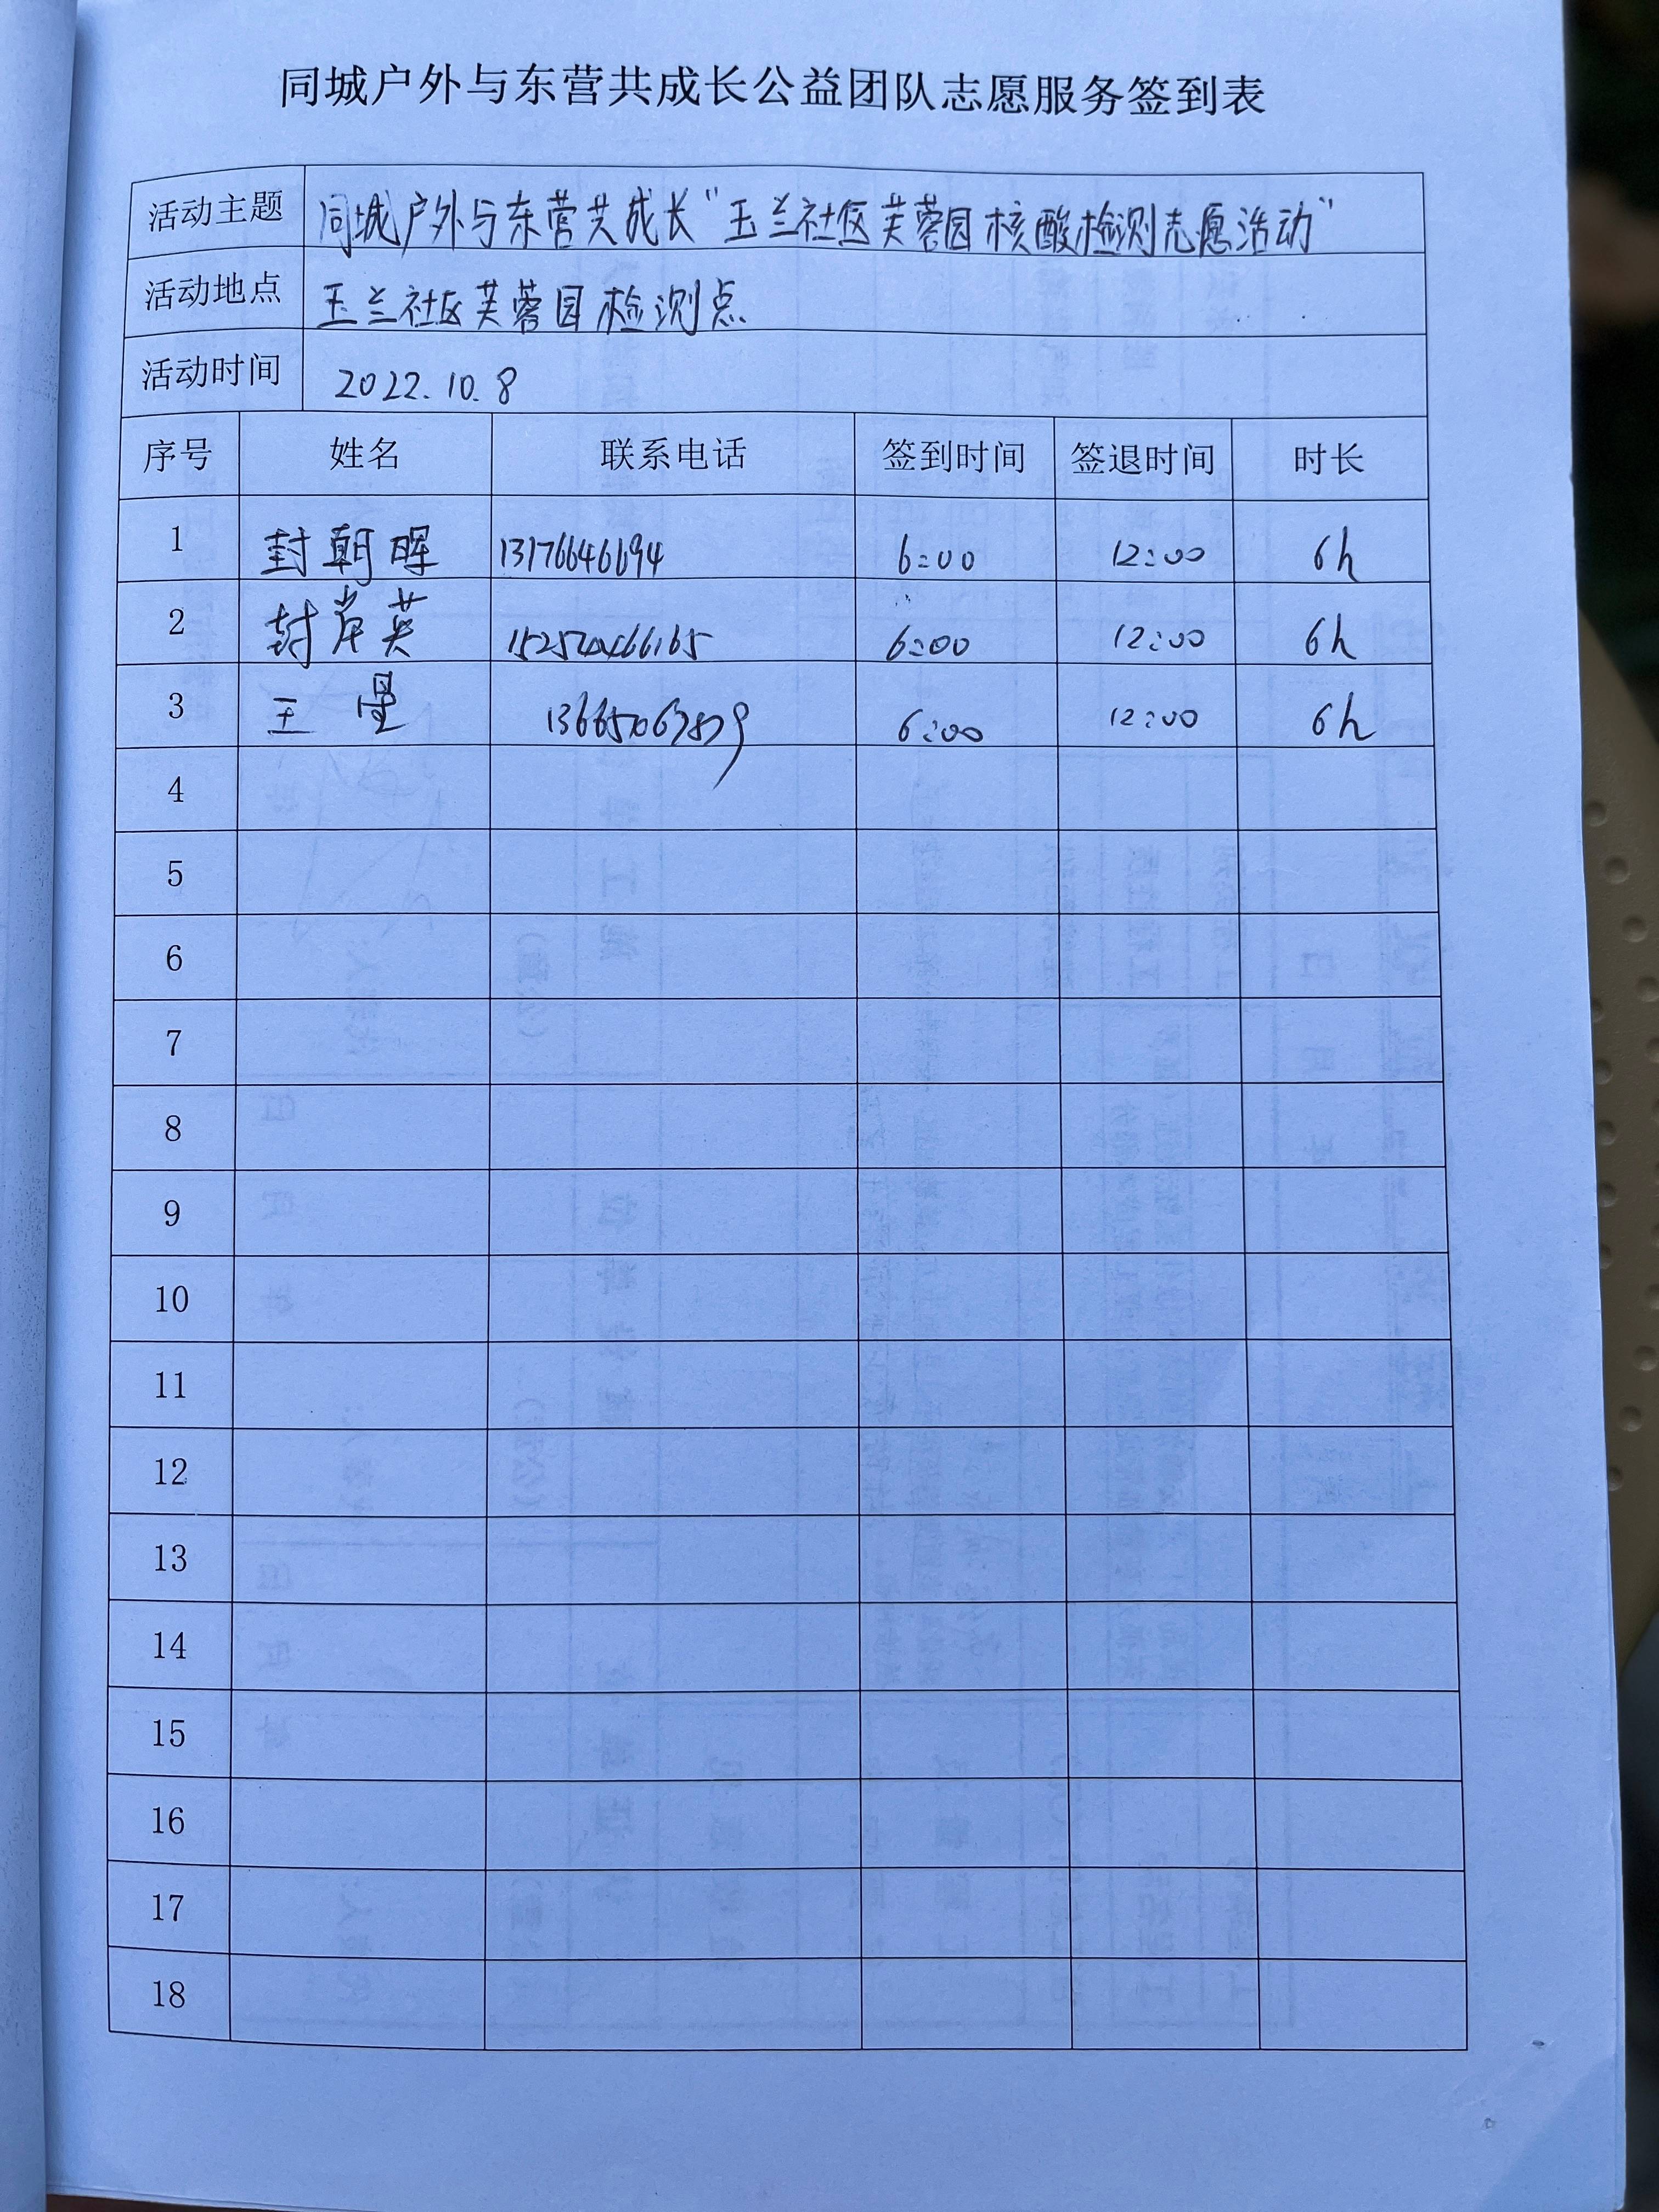 同城户外与东营共成长公益团队志愿服务签到表
活动主题 同城户外与东营共成长“玉兰社区芙蓉园核酸检测志愿活动”
活动地点 玉兰社区芙蓉园检测点
活动时间 2022.10.8
序号 姓名 联系电话 签到时间 签退时间 时长
1 封朝晖 13176646694 6:00 12:00 6h
2 封岸英 6:00 12:00 6h
3 王星 6:00 12:00 6h
4
5
6
7
8
9
10
11
12
13
14
15
16
17
18